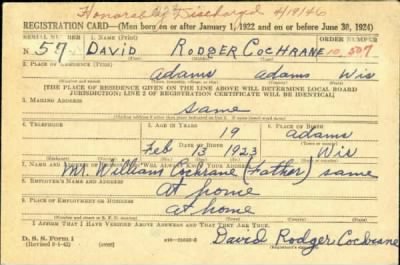 Honorably Discharged 4/18/46
REGISTRATION CARD—(Men born on or after January 1, 1922 and on or before June 30, 1924)
SERIAL NUMBER 1. NAME (Print) ORDER NUMBER
N 57 DAVID RODGER COCHRANE 10,507
2. PLACE OF RESIDENCE (Print)
Adams Adams Wis
[THE PLACE OF RESIDENCE GIVEN ON THE LINE ABOVE WILL DETERMINE LOCAL BOARD
JURISDICTION; LINE 2 OF REGISTRATION CERTIFICATE WILL BE IDENTICAL]
3. MAILING ADDRESS
same
4. TELEPHONE 5. AGE IN YEARS 6. PLACE OF BIRTH
19 Adams
DATE OF BIRTH
Feb 13 1923 Wis
7. NAME AND ADDRESS OF PERSON WHO WILL ALWAYS KNOW YOUR ADDRESS
Mr. William Cochrane (Father) same
8. EMPLOYER'S NAME AND ADDRESS
At home
9. PLACE OF EMPLOYMENT OR BUSINESS
at home
I AFFIRM THAT I HAVE VERIFIED ABOVE ANSWERS AND THAT THEY ARE TRUE.
D. S. S. Form 1
David Rodger Cochrane